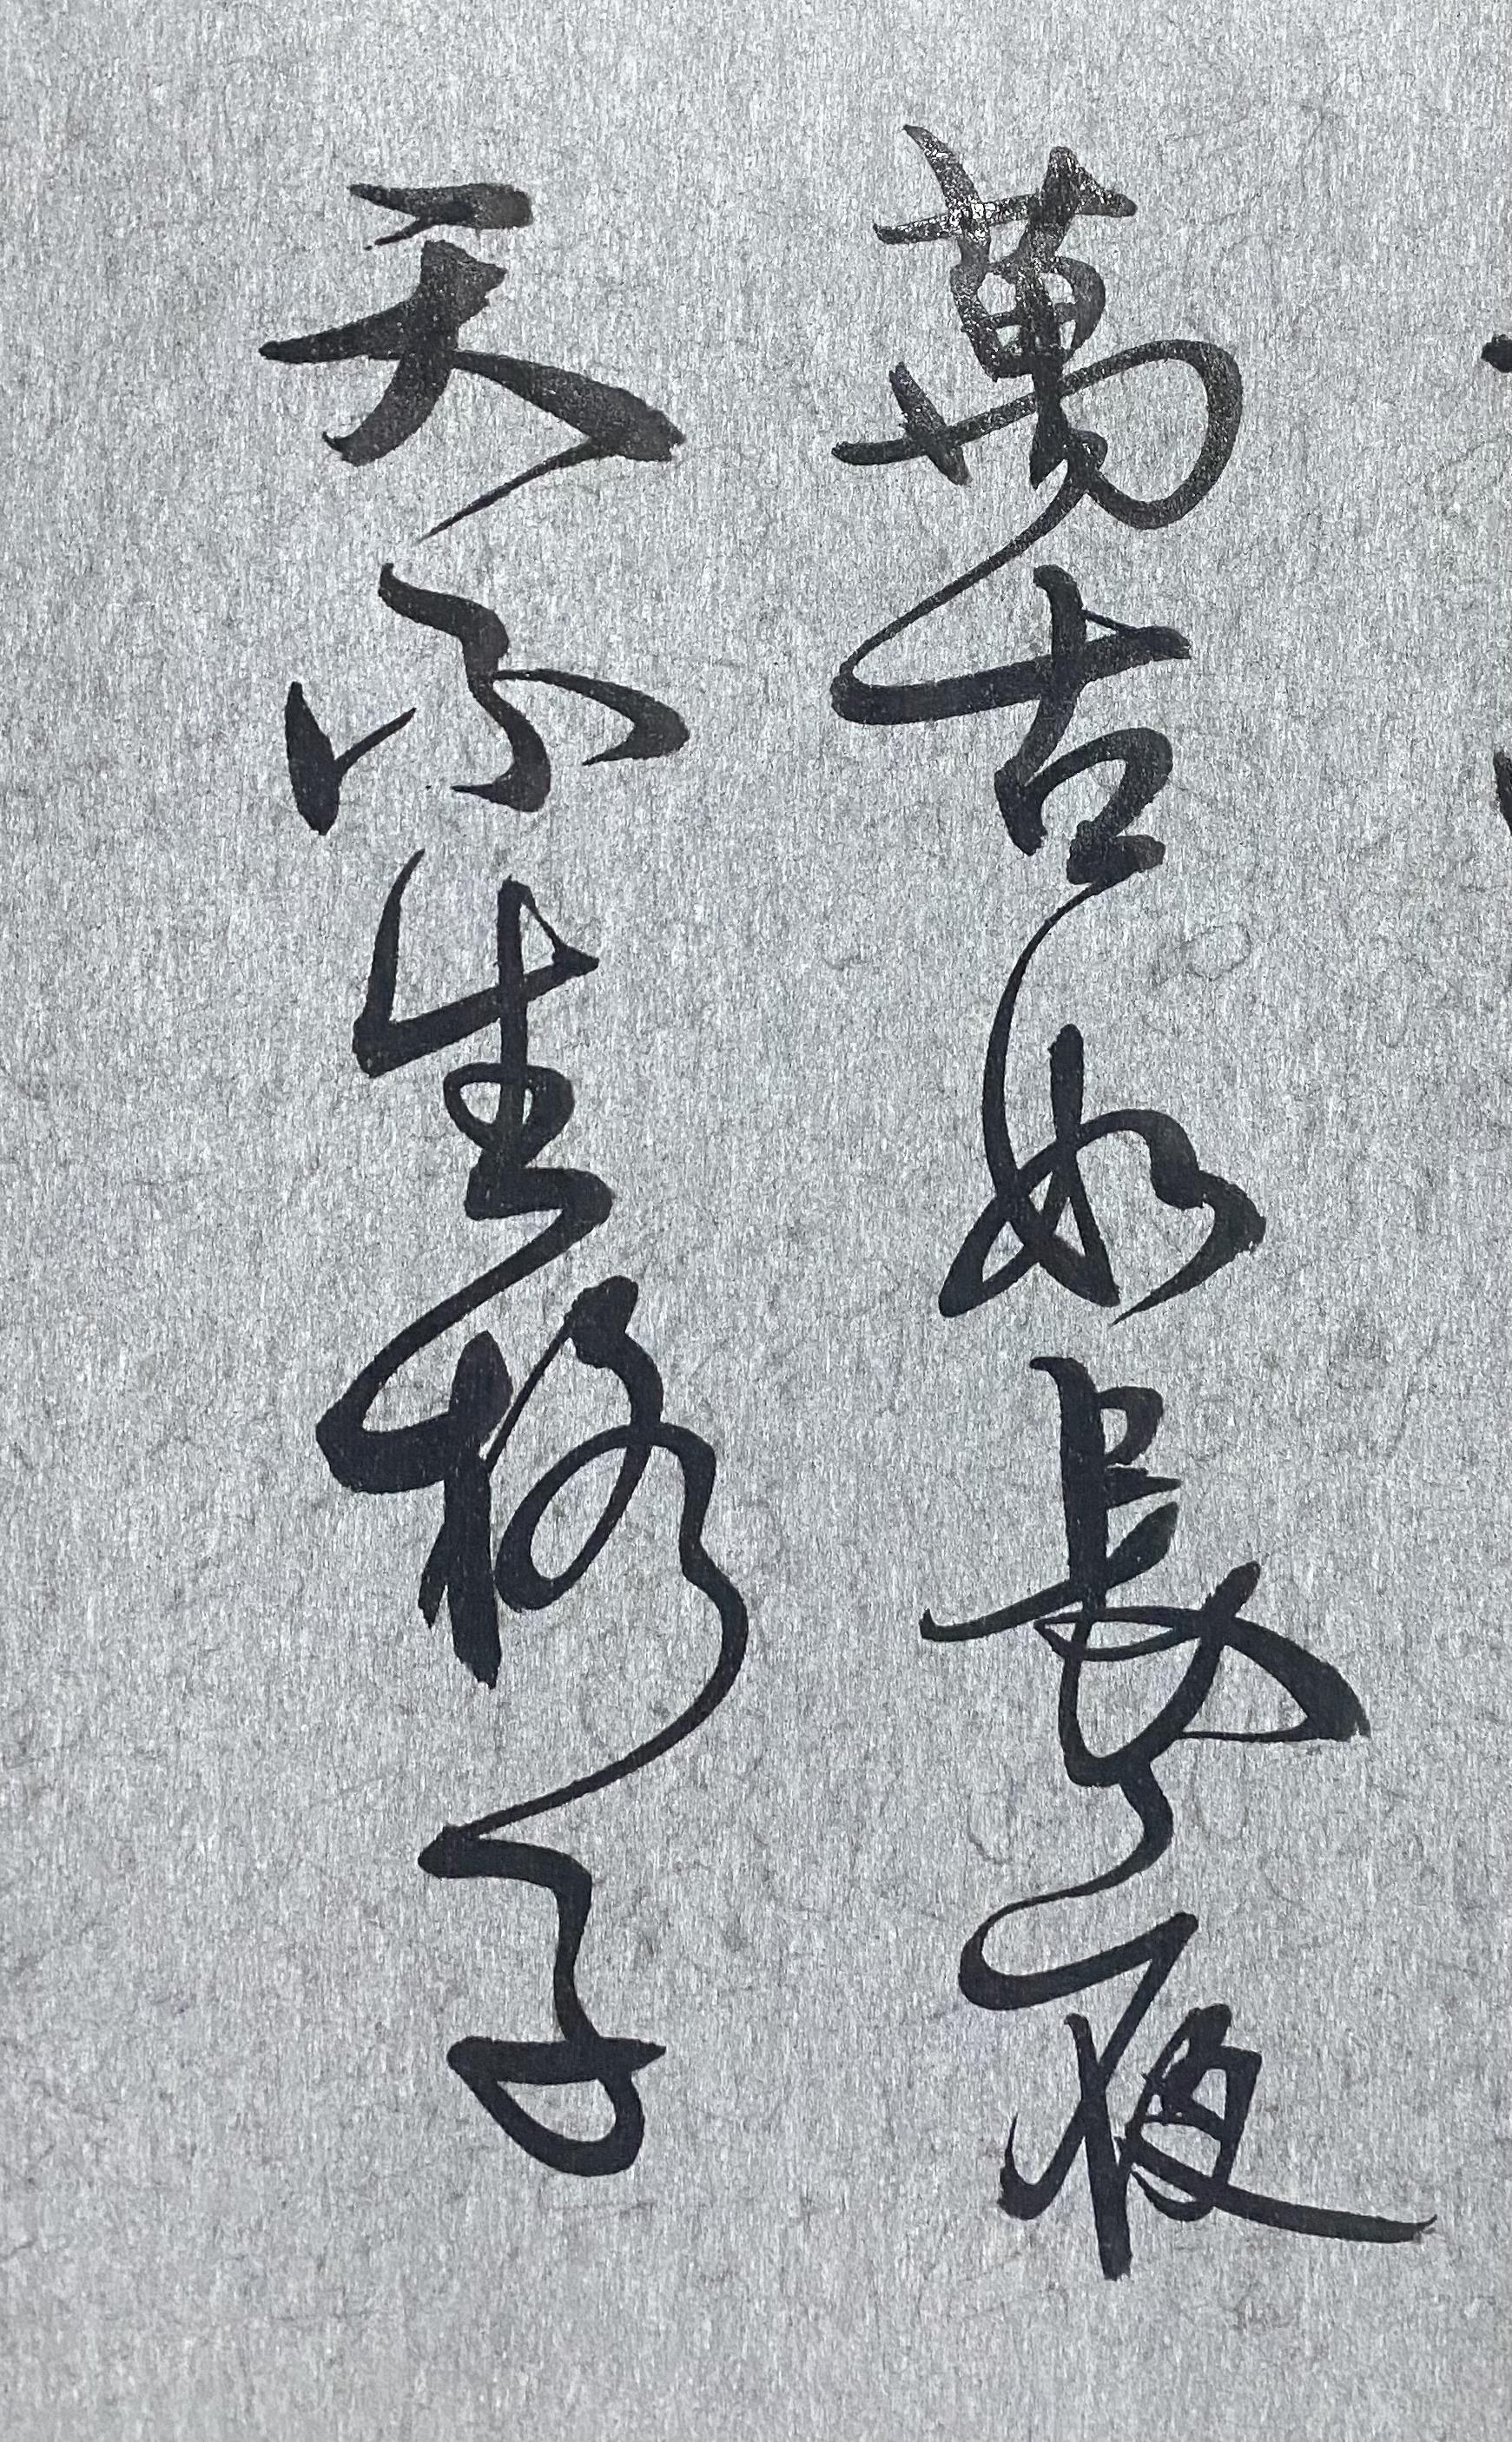 萬古如長夜
天不生格子